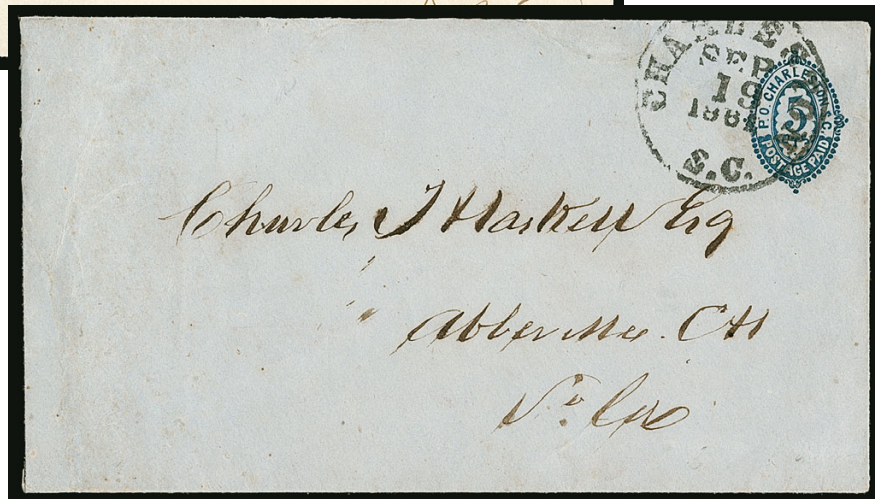 CHARLESTON
SEP
19
1861
S.C.
P.O. CHARLESTON S.C.
5
POSTAGE PAID
Charles T Haskell Esq
Abbeville. CH
So. Ca